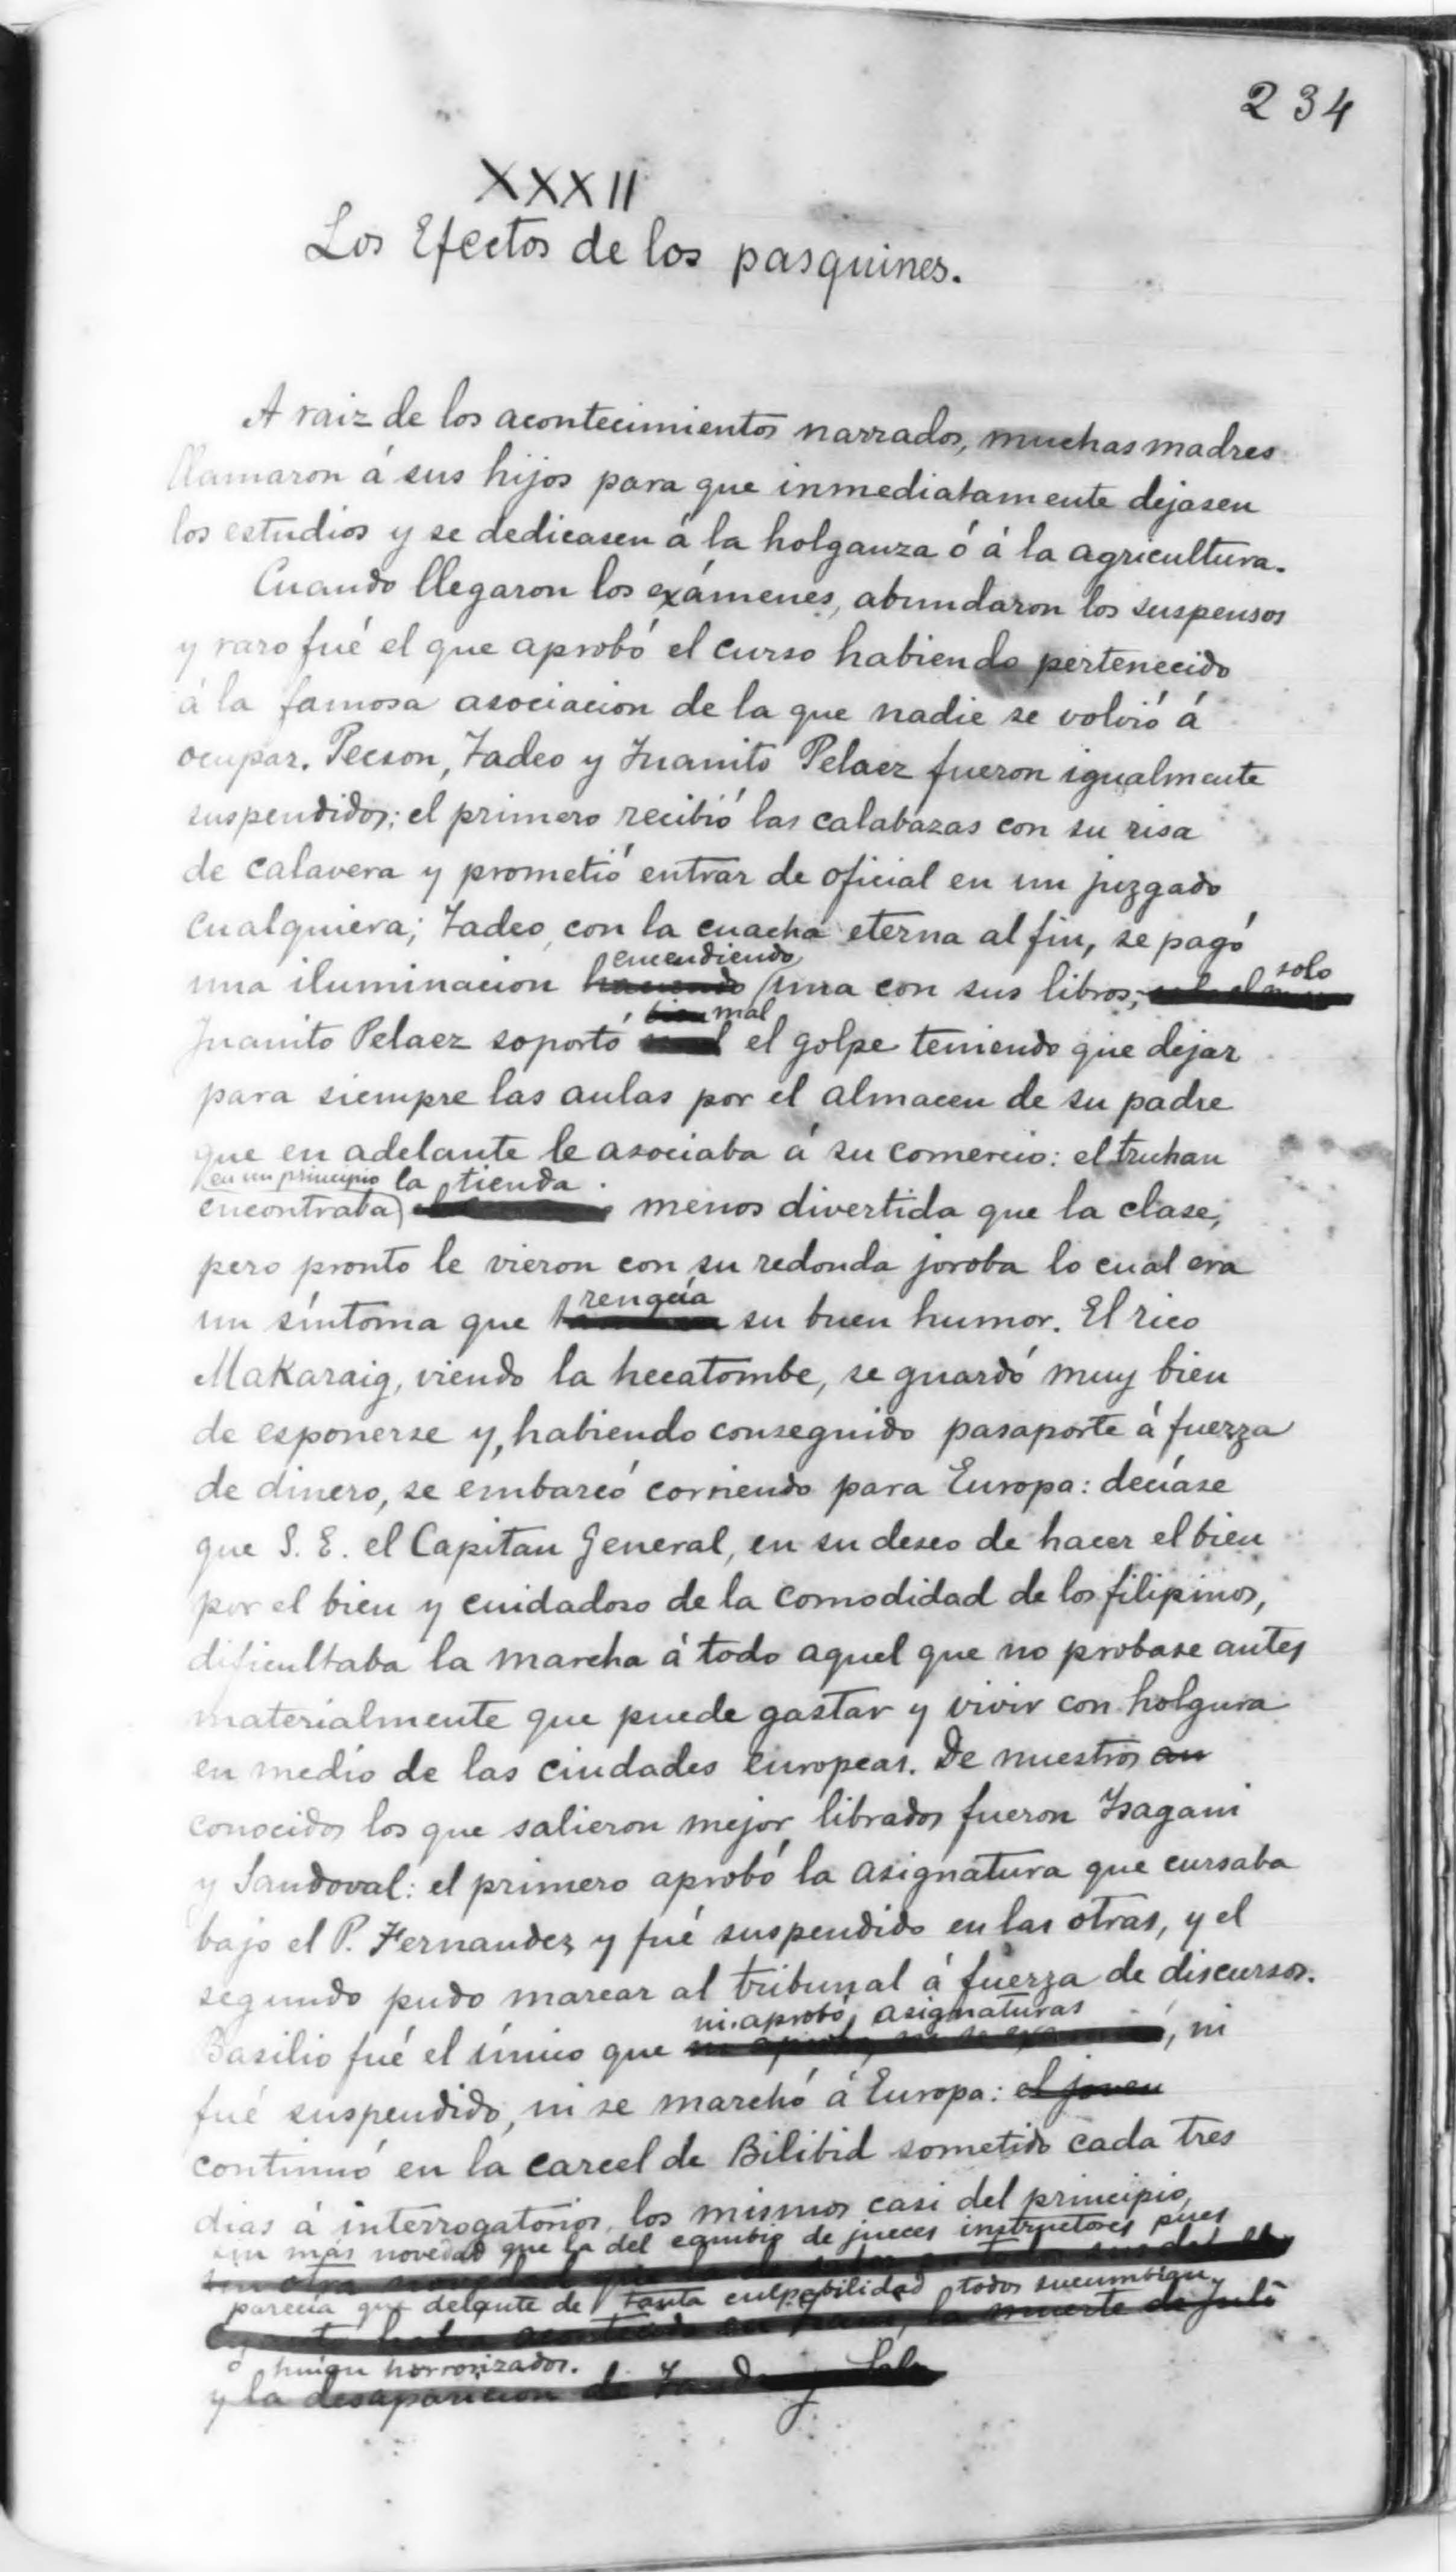 234
XXXII
Los Efectos de los pasquines.
A raiz de los acontecimientos narrados, muchas madres
llamaron á sus hijos para que inmediatamente dejasen
los estudios y se dedicasen á la holganza ó á la agricultura.
Cuando llegaron los exámenes, abundaron los suspensos
y raro fué el que aprobó el curso habiendo pertenecido
á la famosa asociacion de la que nadie se volvió á
ocupar. Pecson, Tadeo y Juanito Pelaez fueron igualmente
suspendidos; el primero recibió las calabazas con su risa
de calavera y prometió entrar de oficial en un juzgado
cualquiera; Tadeo, con la cuacha eterna al fin, se pagó
encendiendo
una iluminacion haciendo una con sus libros; solo
bien mal
Juanito Pelaez soportó el golpe teniendo que dejar
para siempre las aulas por el almacen de su padre
que en adelante le asociaba á su comercio: el truhan
en un principio la tienda
encontraba menos divertida que la clase,
pero pronto le vieron con su redonda joroba lo cual era
renacía
un síntoma que su buen humor. El rico
Makaraig, viendo la hecatombe, se guardó muy bien
de esponerse y, habiendo conseguido pasaporte á fuerza
de dinero, se embarcó corriendo para Europa: decíase
que S. E. el Capitan General, en su deseo de hacer el bien
por el bien y cuidadoso de la comodidad de los filipinos,
dificultaba la marcha á todo aquel que no probase antes
materialmente que puede gastar y vivir con holgura
en medio de las ciudades europeas. De nuestros
conocidos los que salieron mejor librados fueron Isagani
y Sandoval: el primero aprobó la asignatura que cursaba
bajo el P. Fernandez y fué suspendido en las otras, y el
segundo pudo marear al tribunal á fuerza de discursos.
ni aprobó asignaturas
Basilio fué el único que , ni
fué suspendido, ni se marchó á Europa: el joven
continuó en la carcel de Bilibid sometido cada tres
dias á interrogatorios, los mismos casi del principio,
sin más novedad que la del cambio de jueces instructores pues
sin otra novedad que la de
parecía que delante de tanta culpabilidad todos sucumbían
la muerte de Juli
ó huían horrorizados.
y la desaparicion de